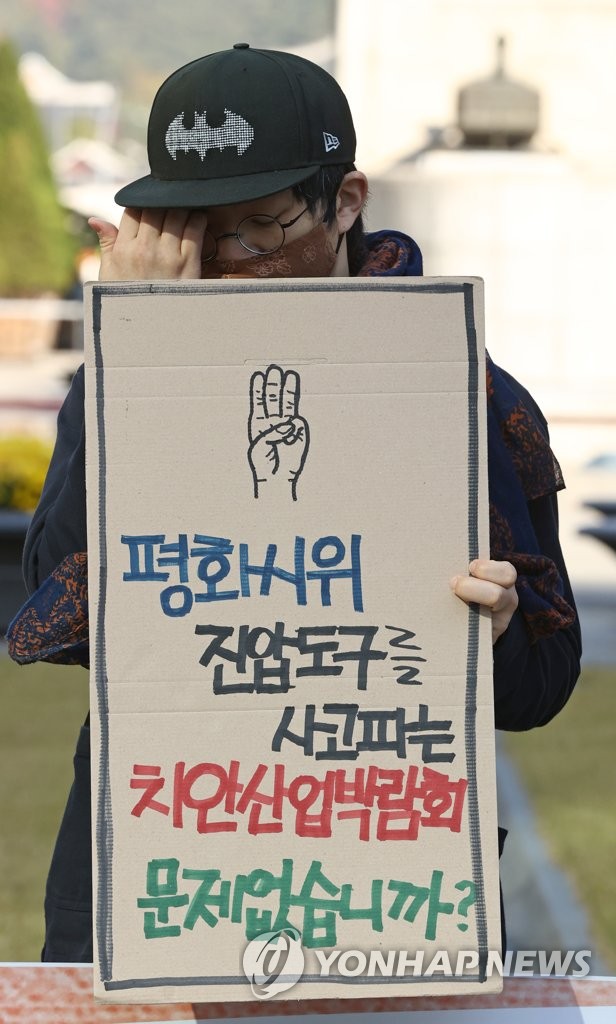 평화시위
진압도구를
사고파는
치안산업박람회
문제없습니까?
YONHAP NEWS